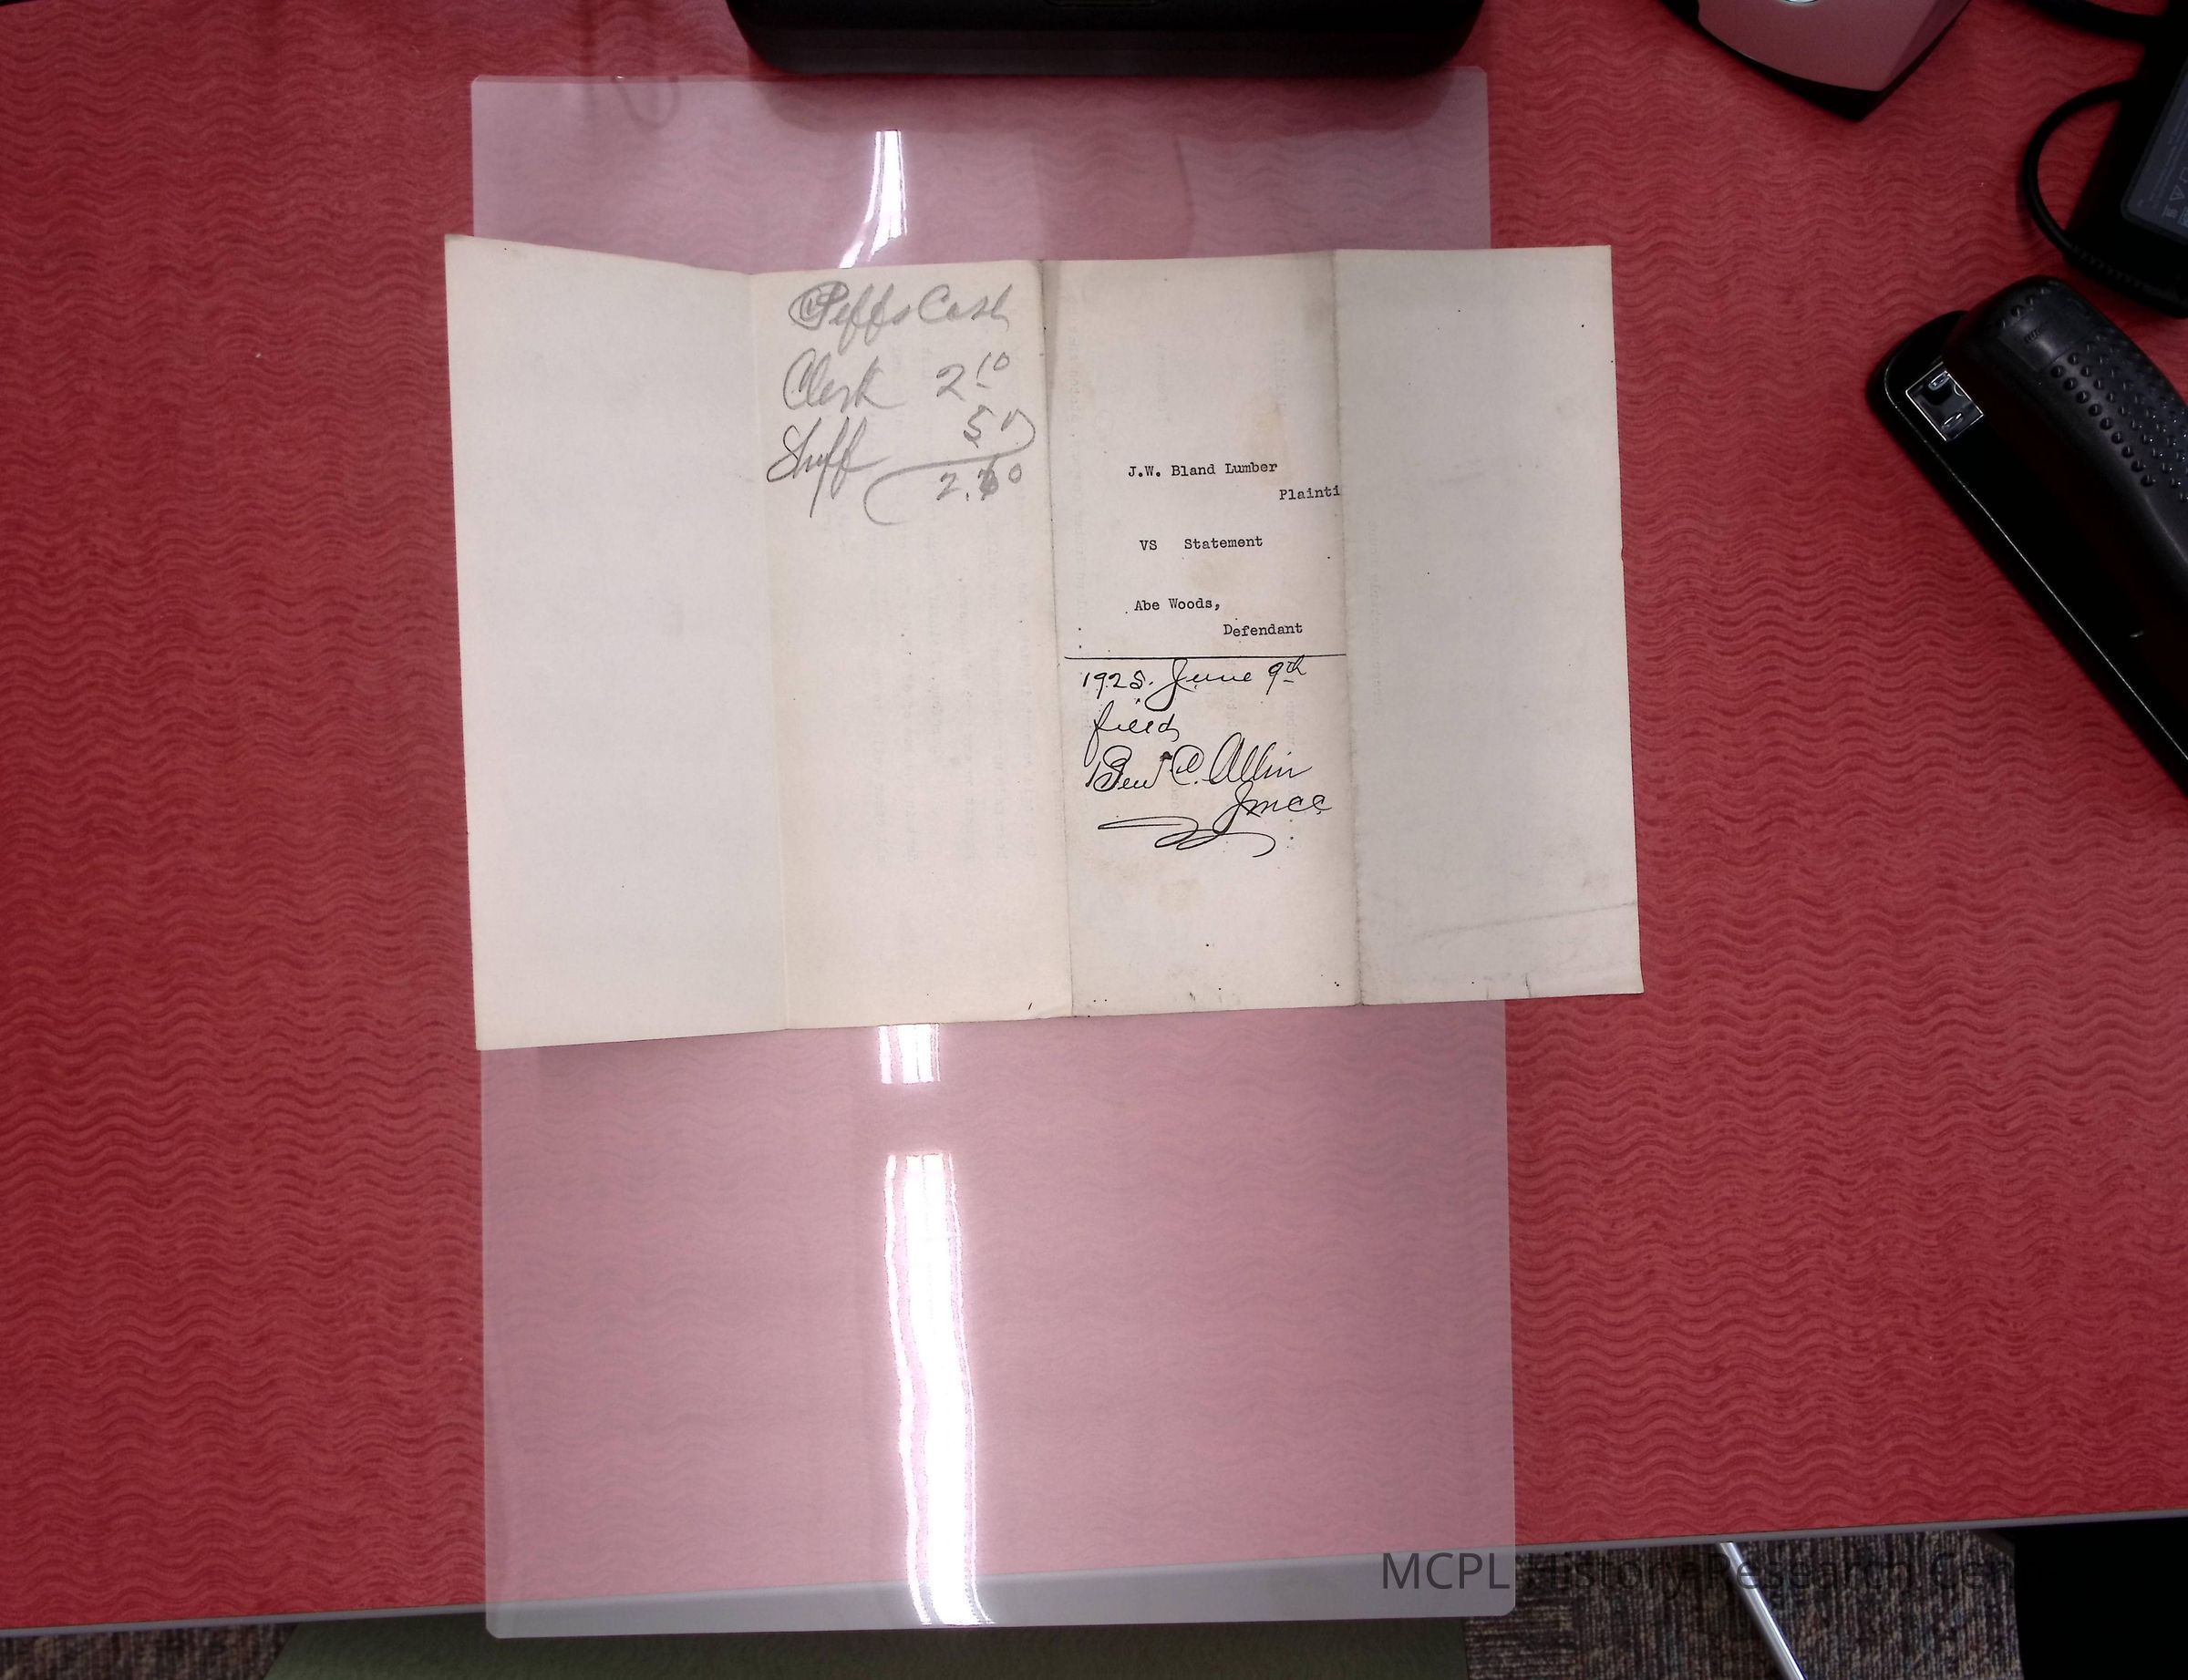 Peffs Cost
Clerk 2 10
Shff 50
2.60
J.W. Bland Lumber
Plainti
VS Statement
Abe Woods,
Defendant
1925. June 9th
filed
Ben C. Allin
JMCC
MCPL History Research Cen